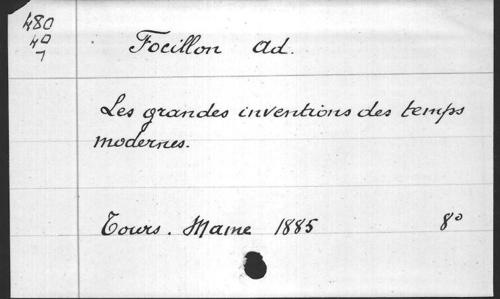 480
40
7
Focillon Ad.
Les grandes inventions des temps
modernes.
Tours. Mame 1885 8°